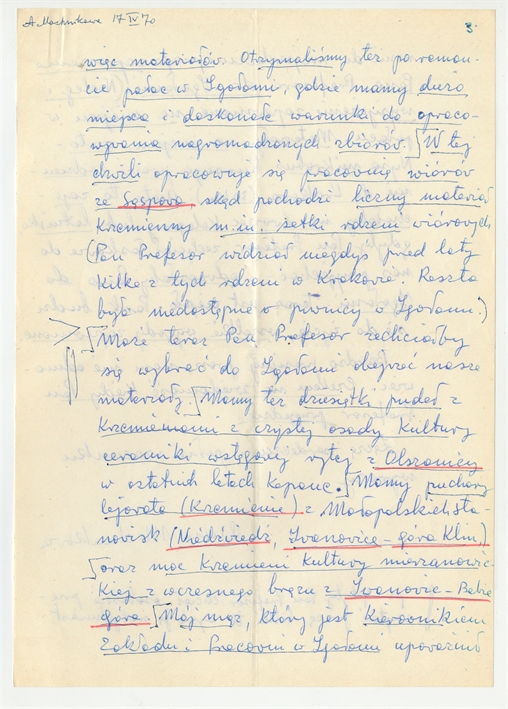 A Machnikowa 17 IV 70
3.
więc materiałów. Otrzymaliśmy też po remon-
cie pałac w Igołomi, gdzie mamy dużo
miejsca i doskonałe warunki do opraco-
wywania nagromadzonych zbiorów. [W tej
chwili opracowuje się pracownię wiórów
ze Sąspowa, skąd pochodzi liczny materiał
krzemienny m.in. setki rdzeni wiórowych
(Pan Profesor widział niegdyś przed laty
kilka z tych rdzeni w Krakowie. Reszta
była niedostępna w piwnicy w Igołomi.)
[Może teraz Pan Profesor zechciałby
się wybrać do Igołomi obejrzeć nasze
materiały. [Mamy też dziesiątki pudeł z
krzemieniami z czystej osady Kultury
ceramiki wstęgowej rytej z Olszanicy
w ostatnich latach kopanej.] Mamy puchary
lejowate (krzemienie) z Małopolskich sta-
nowisk (Niedźwiedź, Iwanowice - góra Klin)
[oraz moc krzemieni kultury mierzanowic-
kiej z wczesnego brązu z Iwanowic - Babia
góra. [Mój mąż, który jest Kierownikiem
Zakładu i Pracowni w Igołomi upoważnił